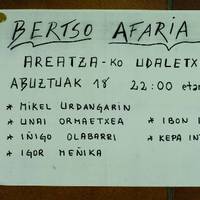 BERTSO AFARIA
AREATZA-KO UDALETX
ABUZTUAK 18 22:00 etan
* MIKEL URDANGARIN
* UNAI ORMAETXEA
* IBON
* IÑIGO OLABARRI
* KEPA
* IGOR MEÑIKA